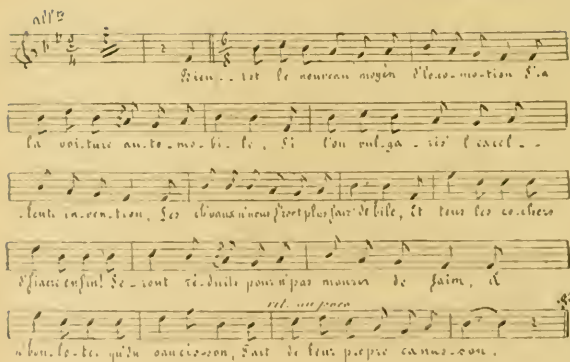 all.tto
Bien.. tôt le nouveau moyen d'loco-mo-tion S'ra
la voi-ture au-to-mo-bi-le, Si l'on vul-ga-ris' l'excel--
-lente in-ven-tion, Les ch'vaux n'nous f'ront plus fair' de bile, Et tous les co-chers
d'fiacre enfin! Se-ront ré-duits pour n'pas mourir de faim, A
rit. un poco
n'bou-lo-ter qu'du saucis-son, Fait de leur propre canas-son.